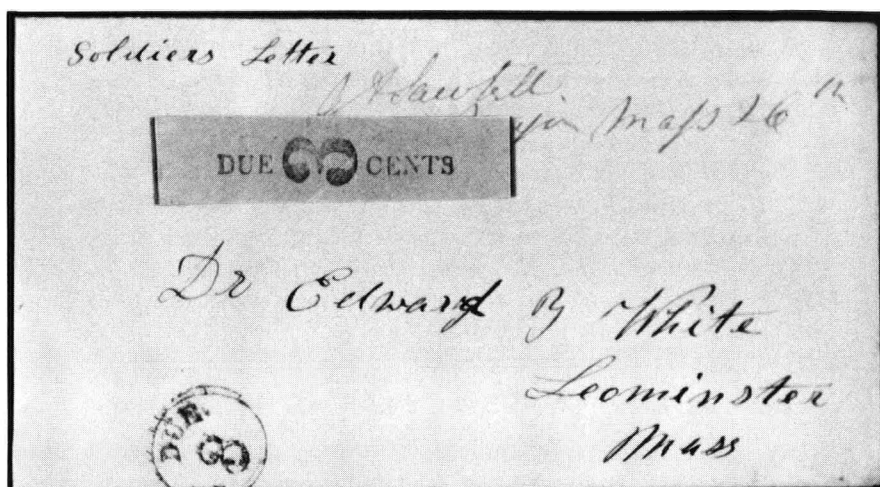 Soldiers Letter
Sawtell
Mass 26th
DUE 3 CENTS
Dr Edward B White
Leominster
Mass
DUE
3